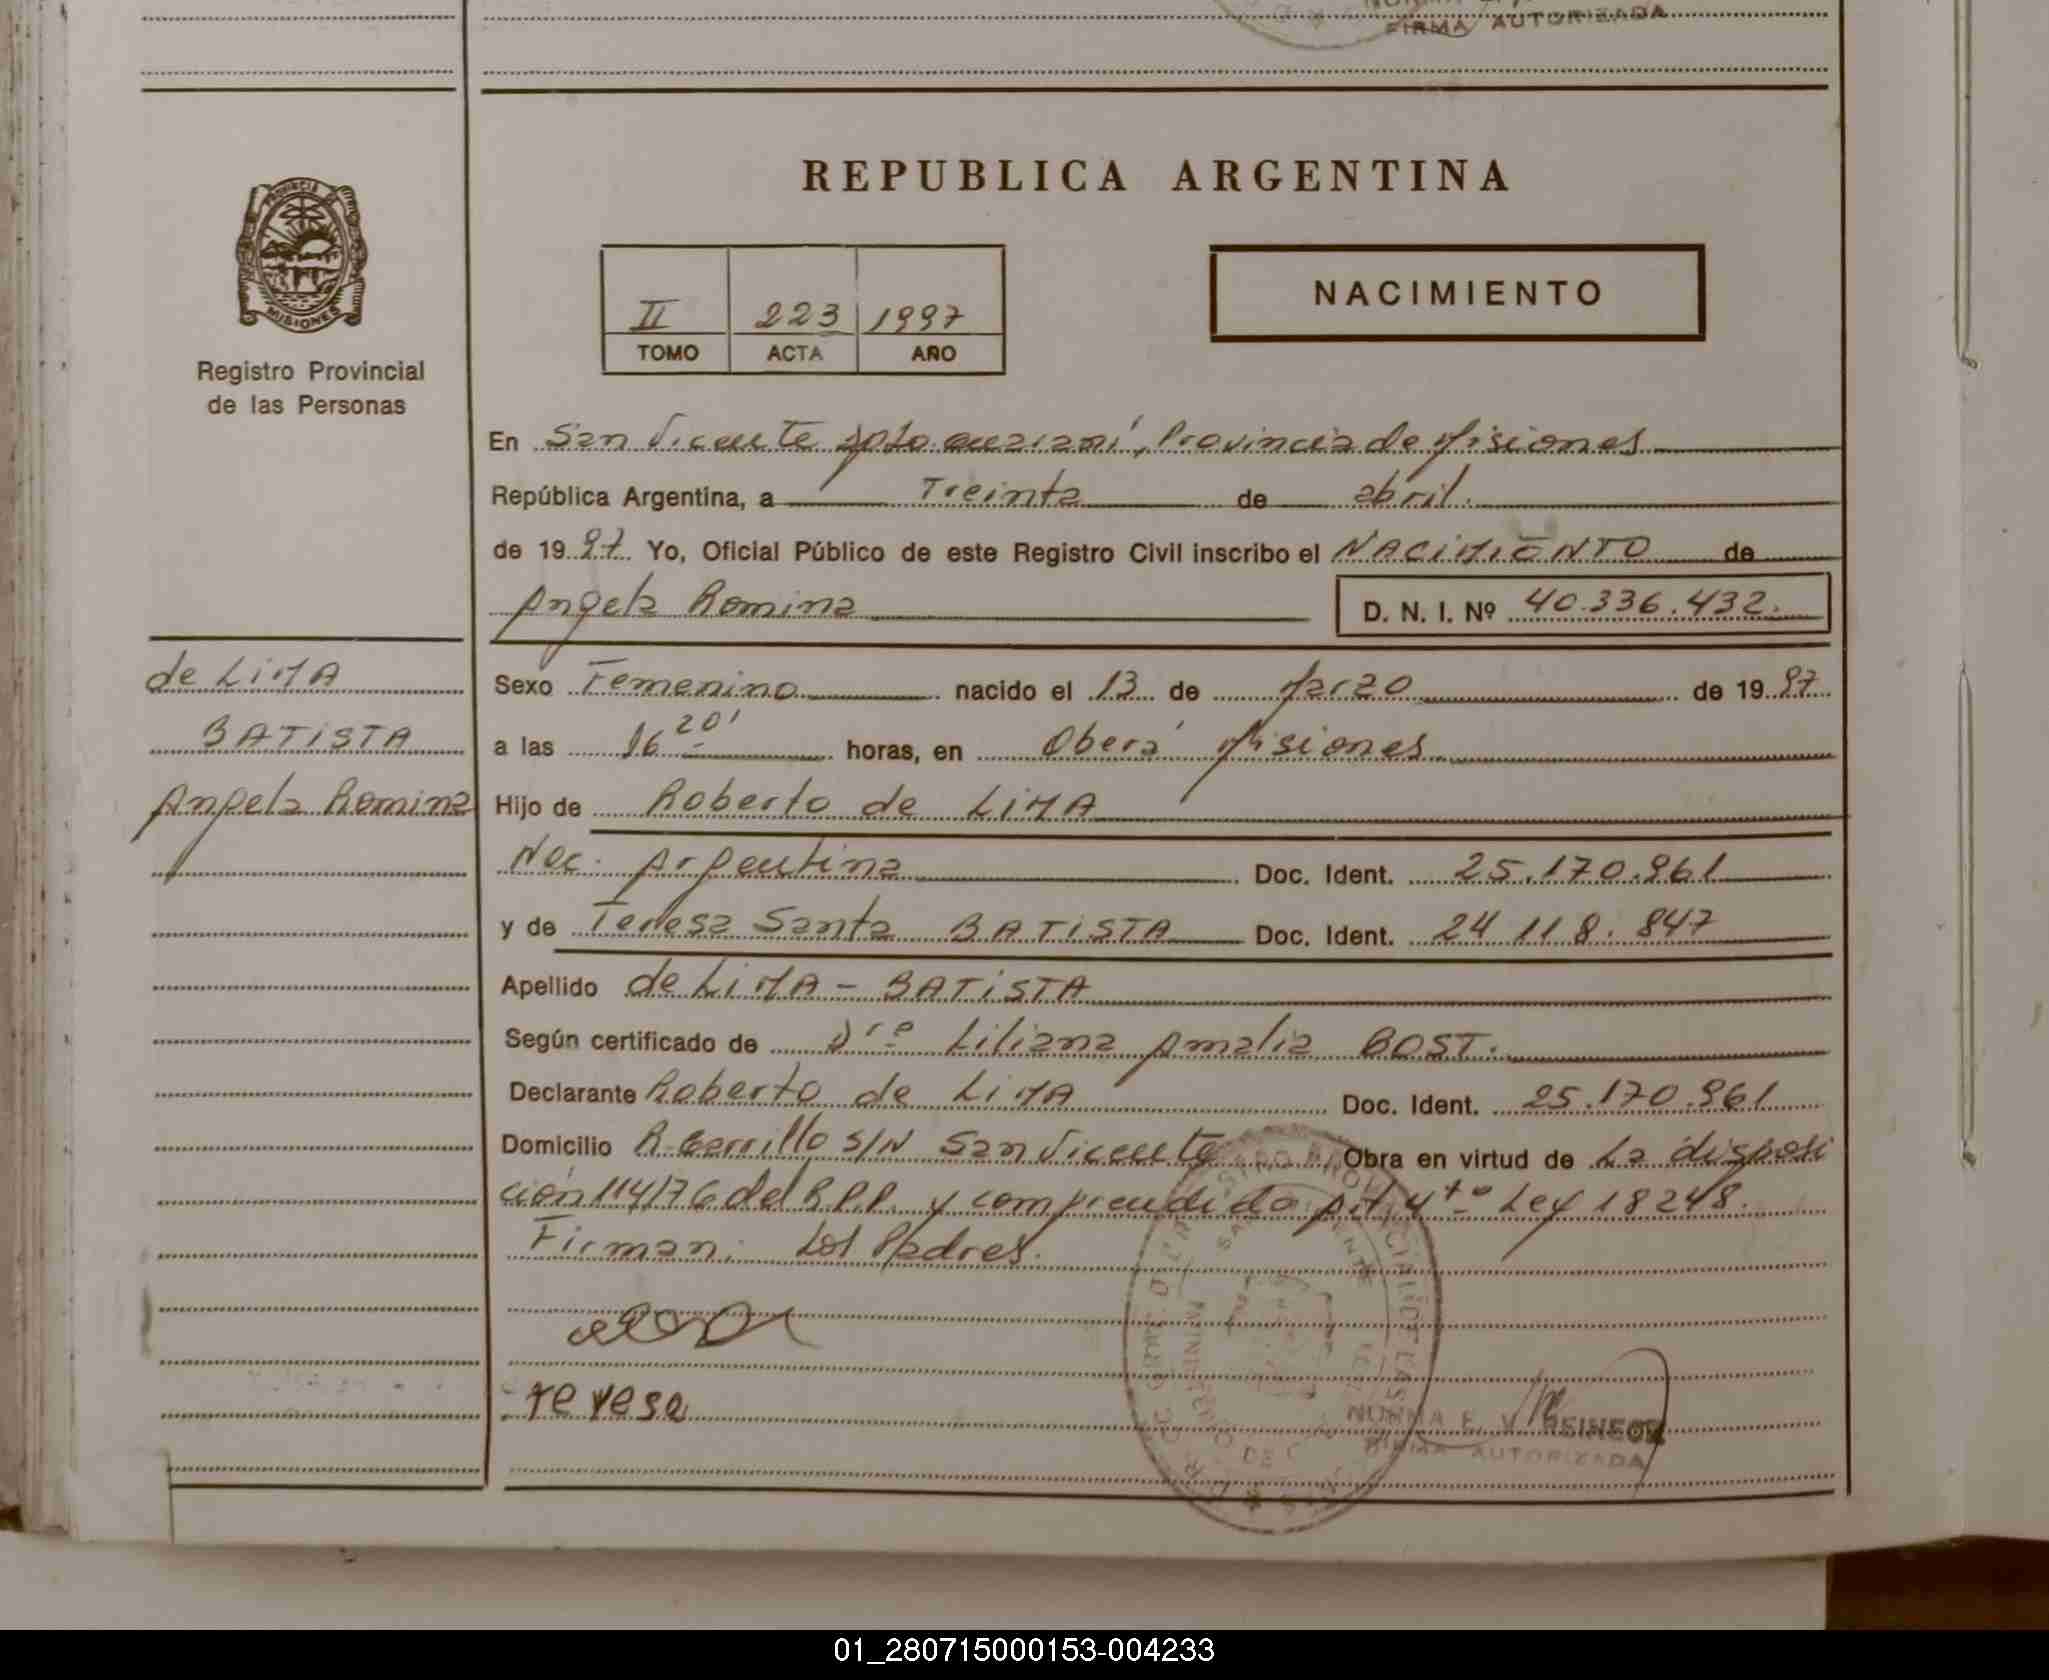 FIRMA AUTORIZADA
REPUBLICA ARGENTINA
PROVINCIA DE MISIONES
II 223 1997
TOMO ACTA AÑO
NACIMIENTO
Registro Provincial
de las Personas
En San Vicente Dpto. Guaraní, Provincia de Misiones
República Argentina, a Treinta de abril.
de 1997 Yo, Oficial Público de este Registro Civil inscribo el NACIMIENTO de
Angela Romina D. N. I. Nº 40.336.432.
de LIMA
BATISTA
Angela Romina
Sexo Femenino nacido el 13 de Marzo de 1997
a las 16 20' horas, en Oberá Misiones
Hijo de Roberto de LIMA
Nac. Argentina Doc. Ident. 25.170.961
y de Teresa Santa BATISTA Doc. Ident. 24 118.847
Apellido de LIMA - BATISTA
Según certificado de Dra Liliana Amalia BOST.
Declarante Roberto de LIMA Doc. Ident. 25.170.961
Domicilio R. Carrillo S/N San Vicente Obra en virtud de La disposi
ción 114/76 del R.P.P. y comprendido Art 4to Ley 18248.
Firman: Los Padres.
teresa
NORMA E. V.
FIRMA AUTORIZADA
01_280715000153-004233